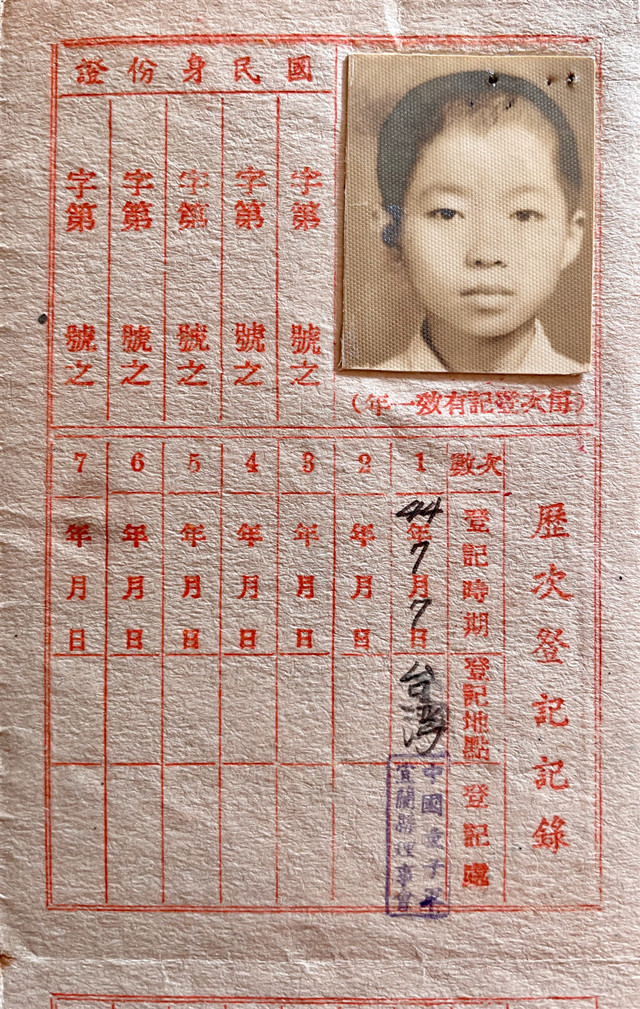 國民身份證
字第　號之
字第　號之
字第　號之
字第　號之
字第　號之
(每次登記有效一年)
歷次登記記錄
次數 登記時期 登記地點 登記處
1 44年7月7日 台灣
中國童子軍
宜蘭縣理事會
2 年月日
3 年月日
4 年月日
5 年月日
6 年月日
7 年月日